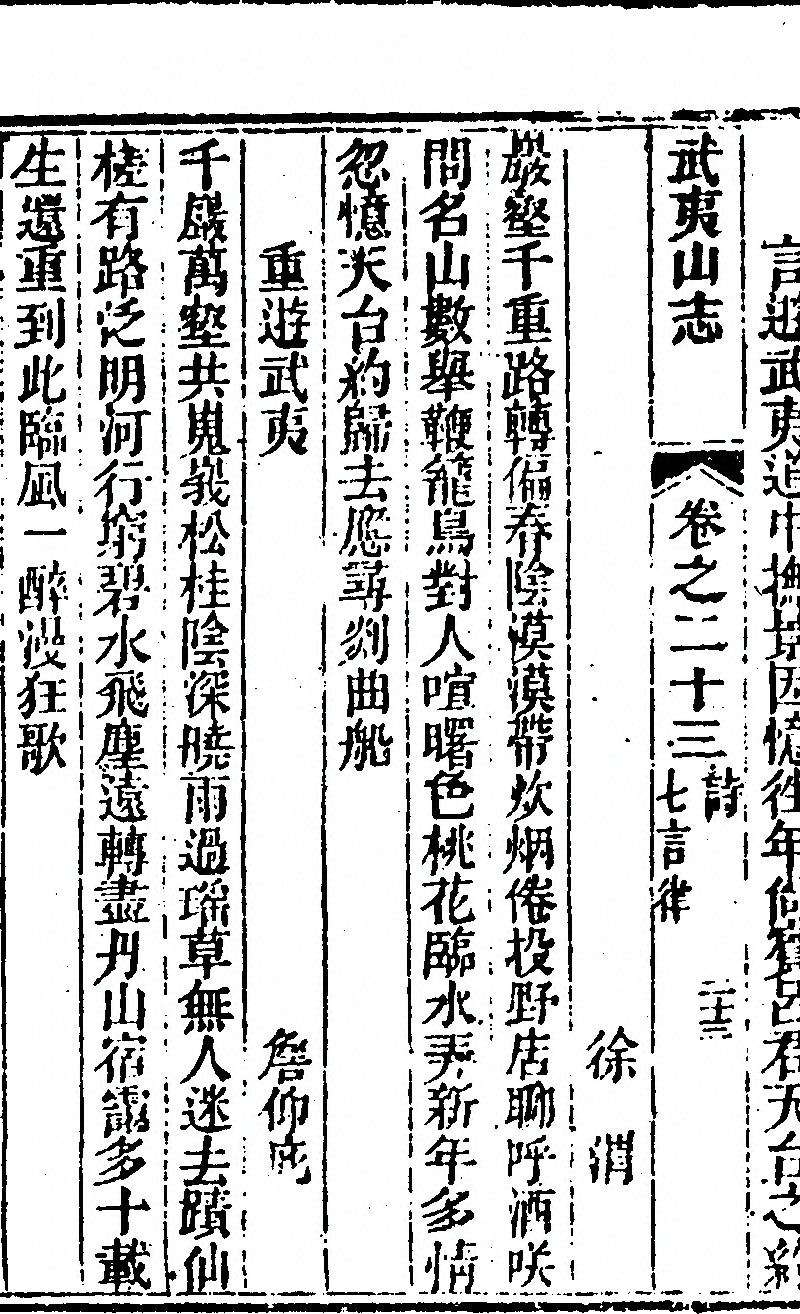 言遊武夷道中撫景因憶往年偕寳邑君天台之
武夷山志
卷之二十三
詩
七言律
二十三
徐渭
巖壑千重路轉偏春陰漠漠帶炊烟倦投野店聊呼酒咲
問名山數舉鞭籠鳥對人喧曙色桃花臨水弄新年多情
忽憶天台約歸去應尋剡曲船
重遊武夷
詹仰庇
千巖萬壑共嵬峩松桂陰深曉雨過瑤草無人迷去蹟仙
槎有路泛明河行窮碧水飛塵遠轉盡丹山宿靄多十載
生還重到此臨風一醉漫狂歌